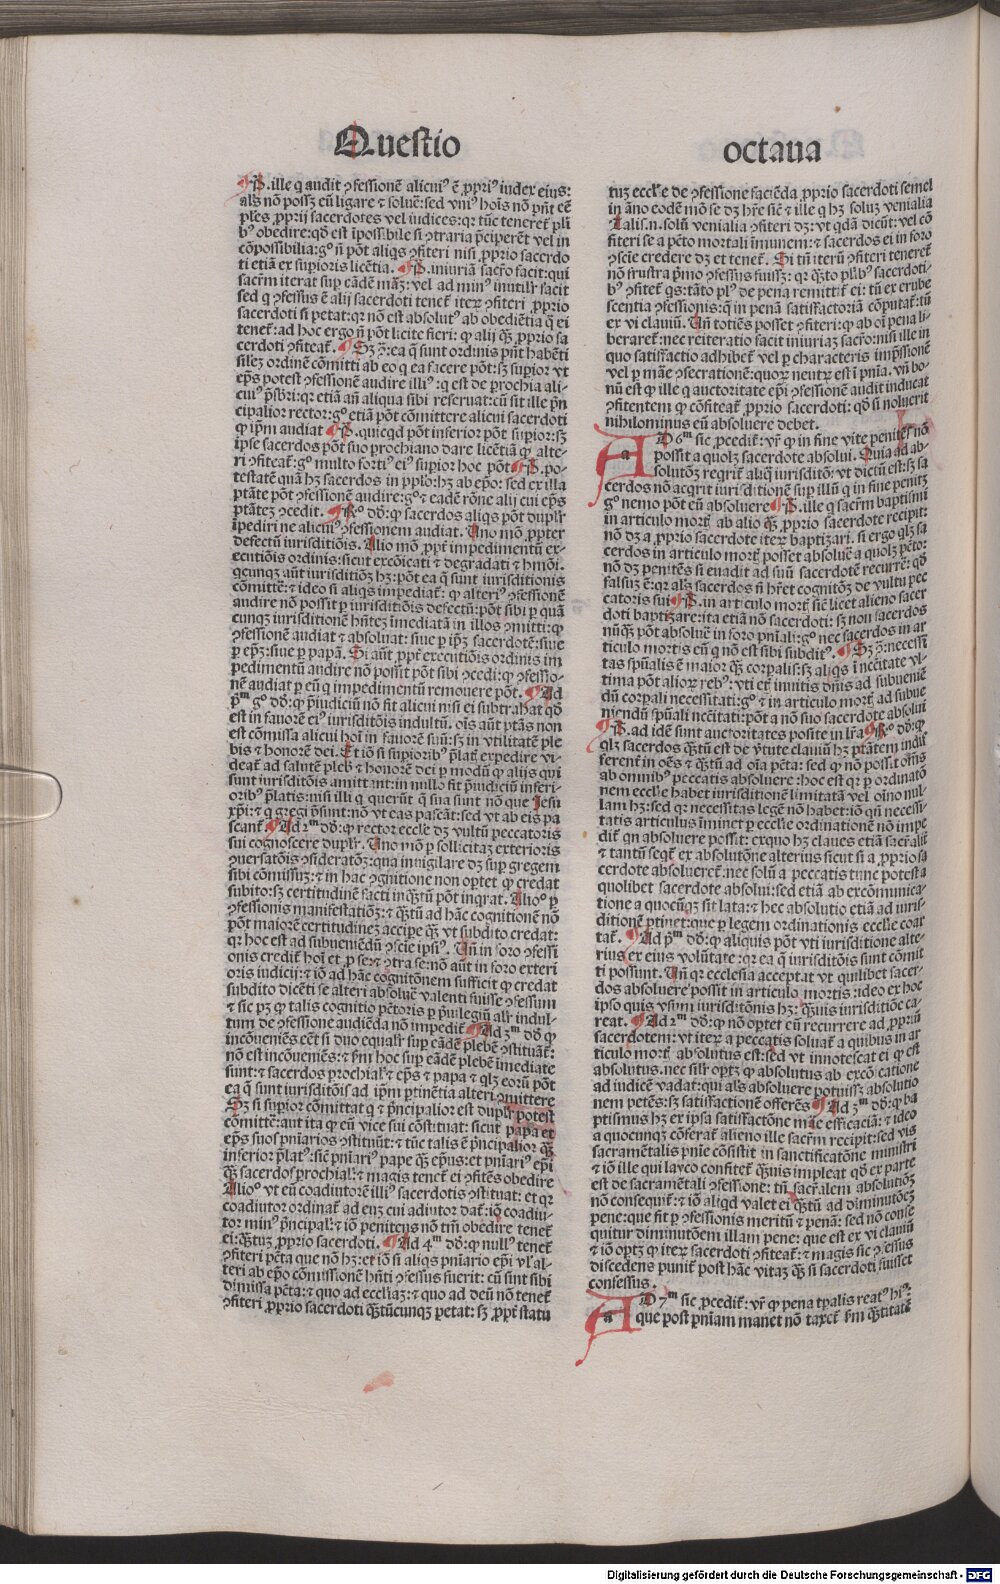 Questio octaua
¶ P̃. ille q audit ꝯfessionē alicuiꝰ ē ꝓpriꝰ iudex eiꝰ:
als̃ nō possꝫ eū ligare ⁊ soluē: sed vniꝰ hoīs nō pn̄t eē
ples ꝓprij sacerdotes vel iudices: qꝛ tūc teneret̃ pl̃i
bꝰ obedire: qd̓ est īpossibile si ꝯtraria p̄ciperēt vel in
cōpossibilia: gͦ n̄ pōt aliqs ꝯfiteri nisi ꝓprio sacerdo
ti etiā ex supioris licētia. ¶ P̃. iniuriā sacr̃o facit: qui
sacr̃m iterat sup eādē māꝫ: vel ad minꝰ inutilr̃ facit
sed q ꝯfessus ē alij sacerdoti tenet̃ iteꝝ ꝯfiteri ꝓprio
sacerdoti si petat: qꝛ nō est absolutꝰ ab obediētia q̄ ei
tenet̃: ad hoc ergo n̄ pōt licite fieri: ꝙ alij q̃ꝫ ꝓprio sa
cerdoti ꝯfiteat̃. ¶ Sꝫ ꝯ̃: ea q̄ sunt ordinis pn̄t habēti
silēꝫ ordinē cōmitti ab eo q ea facere pōt: sꝫ supior vt
ep̄s potest ꝯfessionē audire illiꝰ: q est de prochia ali
cuiꝰ p̄sbr̃i: qꝛ etiā an̄ aliqua sibi reseruat: cū sit ille p̄n
cipalior rector: gͦ etiā pōt cōmittere alicui sacerdoti
ꝙ ip̄m audiat ¶ P̃. quicqd pōt inferior pōt supior: sꝫ
ipse sacerdos pōt suo prochiano dare licētiā ꝙ alte-
ri ꝯfiteat̃: gͦ multo fortiꝰ eiꝰ supior hoc pōt ¶ P̃. po-
testatē quā hꝫ sacerdos in pplo: hꝫ ab ep̄o: sed ex illa
ptāte pōt ꝯfessionē audire: gͦ ⁊ eadē rōne alij cui ep̄s
ptātēꝫ ꝯcedit. ¶ R̃ͦ dd̓: ꝙ sacerdos aliqs pōt duplr̃
īpediri ne alicuiꝰ ꝯfessionem audiat. Uno mō ꝓpter
defectū iurisditiōis. Alio mō ꝓpt̃ impedimentū ex-
ecutiōis ordinis: sicut excōicati ⁊ degradati ⁊ hmōi.
qcunqꝫ aūt iurisditiōꝫ hꝫ: pōt ea q̄ sunt iurisditionis
cōmittē: ⁊ ideo si aliqs impediat̃: ꝙ alteriꝰ ꝯfessionē
audire nō possit ꝑ iurisditiōis defectū: pōt sibi ꝑ quā
cunqꝫ iurisditionē hn̄teꝫ īmediatā in illos ꝯmitti: ꝙ
ꝯfessionē audiat ⁊ absoluat: siue ꝑ ip̄ꝫ sacerdotē: siue
ꝑ ep̄ꝫ: siue ꝑ papā. Si aūt ꝓpt̃ executiōis ordinis im
pedimentū audire nō possit pōt sibi ꝯcedi: ꝙ ꝯfessio-
nē audiat ꝑ eū q impedimentū remouere pōt. ¶ Ad
pᵐ gͦ dd̓: ꝙ p̄iudiciū nō fit alicui nisi ei subtrahat̃ qd̓
est in fauorē eiꝰ iurisditiōis indultū. oīs aūt ptās non
est cōmissa alicui hoī in fauorē suū: sꝫ in vtilitatē ple
bis ⁊ honorē dei. Et iō si supioribꝰ p̄lat̃ expedire vi-
deat̃ ad salutē pleb̓ ⁊ honorē dei ꝑ modū ꝙ alijs qui
sunt iurisditōis amittant: in nullo fit p̄iudiciū inferi-
oribꝰ p̄latis: nisi illi q querūt q̄ sua sunt nō que Jesu
xp̄i: ⁊ q gregi p̄sunt: nō vt eas pascāt: sed vt ab eis pa
scant̃ ¶ Ad 2ᵐ dd̓: ꝙ rector eccl̓e dꝫ vultū peccatoris
sui cognoscere duplr̃. Uno mō ꝑ sollicitaꝫ exterioris
ꝯuersatōis ꝯsideratōꝫ: qua inuigilare dꝫ sup gregem
sibi cōmissuꝫ: ⁊ in hac ꝯgnitione non optet ꝙ credat
subito: sꝫ certitudinē facti inq̃tū pōt inqrat. Alioͦ ꝑ
ꝯfessionis manifestatiōꝫ: ⁊ q̃tū ad hāc cognitionē nō
pōt maiorē certitudineꝫ accipe q̃ꝫ vt subdito credat:
qꝛ hoc est ad subueniēdū ꝯscie ipsiꝰ. Un̄ in foro ꝯfessi
onis credit̃ hoī et ꝓ se: ⁊ ꝯtra se: nō aūt in foro exteri
oris iudicij: ⁊ iō ad hāc cognitōnem sufficit ꝙ credat
subdito dicēti se alteri absoluē valenti fuisse ꝯfessum
⁊ sic pꝫ ꝙ talis cognitio pctōris ꝑ p̄uilegiū alr̃ indul-
tum de ꝯfessione audiēda nō impedit̃ ¶ Ad 3ᵐ dd̓ ꝙ
incōueniēs eēt si duo equalr̃ sup eādē plebē ꝯstituāt̃:
nō est incōueniēs: ⁊ sm̄ hoc sup eādē plebē imediate
sunt: ⁊ sacerdos prochial̓ ⁊ ep̄s ⁊ papa ⁊ qlꝫ eoꝝ pōt
ea q̄ sunt iurisditiōis ad ip̄m ptinētia alteri ꝯmittere
Sꝫ si supior cōmittat q ⁊ p̄ncipalior est duplr̃ potest
cōmittē: aut ita ꝙ eū vice sui cōstituat: sicut papa et
ep̄s suos pniārios ꝯstituūt: ⁊ tūc talis ē p̄ncipalior q̃ꝫ
inferior p̄latꝰ: sic̄ pniāriꝰ pape q̃ꝫ ep̄us: et pniāriꝰ ep̄i
q̃ꝫ sacerdos prochial̓: ⁊ magis tenet̃ ei ꝯfitēs obedire
Alioͦ vt eū coadiutorē illiꝰ sacerdotis ꝯstituat: et qꝛ
coadiutor ordinat̃ ad euꝫ cui adiutor dat̃: iō coadiu-
tor minꝰ p̄ncipal̓: ⁊ iō penitens nō tm̄ obedire tenet̃
ei: q̃tuꝫ ꝓprio sacerdoti. ¶ Ad 4ᵐ dd̓: ꝙ nullꝰ tenet̃
ꝯfiteri pctā que nō hꝫ: et iō si aliqs pniario ep̄i vl̓ al-
teri ab ep̄o cōmissionē hn̄ti ꝯfessus fuerit: cū sint sibi
dimissa pctā: ⁊ quo ad eccl̓iaꝫ: ⁊ quo ad deū nō tenet̃
ꝯfiteri ꝓprio sacerdoti q̃tūcunqꝫ petat: sꝫ ꝓpt̃ statu
tuꝫ eccl̓e de ꝯfessione faciēda ꝓprio sacerdoti semel
in āno eodē mō se dꝫ hr̄e sic̄ ⁊ ille q hꝫ soluꝫ venialia
Talis .n. solū venialia ꝯfiteri dꝫ: vt qdā dicūt: vel cō
fiteri se a pctō mortali īmunem: ⁊ sacerdos ei in foro
ꝯscie credere dꝫ et tenet̃. Si tn̄ iterū ꝯfiteri teneret̃
nō frustra p̄mo ꝯfessus fuissꝫ: qꝛ q̃to pl̓ibꝰ sacerdoti-
bꝰ ꝯfitet̃ qs: tāto plꝰ de pena remittit̃ ei: tū ex erube
scentia ꝯfessionis: q̄ in penā satisfactoriā cōputat̃: tū
ex vi clauiū. Un̄ totiēs posset ꝯfiteri: ꝙ ab oī pena li-
beraret̃: nec reiteratio facit iniuriaꝫ sacr̃o: nisi ille in
quo satisfactio adhibet̃ vel ꝑ characteris imp̄ssionē
vel ꝑ māe ꝯsecrationē: quoꝝ neutrꝝ est ī pnīa. vn̄ bo-
nū est ꝙ ille q auctoritate ep̄i ꝯfessionē audit inducat
ꝯfitentem ꝙ cōfiteat̃ ꝓprio sacerdoti: qd̓ si noluerit
nihilominus eū absoluere debet.
AD 6ᵐ sic ꝓcedit̃: vr̃ ꝙ in fine vite penitēs nō
possit a quolꝫ sacerdote absolui. Quia ad ab-
solutōꝫ reqrit̃ aliq̄ iurisditō: vt dictū est: sꝫ sa
cerdos nō acqrit iurisditionē sup illū q in fine penitꝫ
gͦ nemo pōt eū absoluere ¶ P̃. ille q sacr̃m baptismi
in articulo mort̃ ab alio q̃ꝫ ꝓprio sacerdote recipit:
nō dꝫ a ꝓprio sacerdote iteꝝ baptizari. si ergo qlꝫ sa
cerdos in articulo mort̃ posset absoluē a quolꝫ pctō:
nō dꝫ penitēs si euadit ad suū sacerdotē recurrē: qd̓
falsuꝫ ē: qꝛ als̃ sacerdos n̄ hr̄et cognitōꝫ de vultu pec
catoris sui ¶ P̃. in articulo mort̃ sic̄ licet alieno sacer
doti baptizare: ita etiā nō sacerdoti: sꝫ non sacerdos
nūqꝫ pōt absoluē in foro pnīali: gͦ nec sacerdos in ar
ticulo mortis eū q nō est sibi subditꝰ. ¶ Sꝫ ꝯ̃: necessi
tas spūalis ē maior q̃ꝫ corpalis: sꝫ aliqs ī nc̄citate vl
tima pōt alioꝝ rebꝰ: vti et̃ inuitis dn̄is ad subueniē
dū corpali necessitati: gͦ ⁊ in articulo mort̃ ad subue
niendū spūali nc̄citati: pōt a nō suo sacerdote absolui
¶ P̃. ad idē sunt auctoritates posite in l̓ra ¶ R̃ͦ dd̓: ꝙ
qlꝫ sacerdos q̃tū est de v̓tute clauiū hꝫ ptātem indif
ferent̃ in oēs ⁊ q̃tū ad oīa pctā: sed ꝙ nō possit oēs
ab omnibꝰ peccatis absoluere: hoc est qꝛ ꝑ ordinatō
nem eccl̓e habet iurisditionē limitatā vel oīno nul-
lam hꝫ: sed qꝛ necessitas legē nō habet: iō qn̄ necessi-
tatis articulus īminet ꝑ eccl̓ie ordinationē nō impe
dit̃ qn absoluere possit: exquo hꝫ claues etiā sacr̃alit̃
⁊ tantū seqt̃ ex absolutōne alterius sicut si a ꝓprio sa
cerdote absolueret̃: nec solū a peccatis tunc potest a
quolibet sacerdote absolui: sed etiā ab excōmunica-
tione a quocūqꝫ sit lata: ⁊ hec absolutio etiā ad iuris-
ditionē ptinet: que ꝑ legem ordinationis eccl̓ie coar
tat̃. ¶ Ad pᵐ dd̓: ꝙ aliquis pōt vti iurisditione alte-
rius ex eius volūtate: qꝛ ea q̄ iurisditōis sunt cōmit
ti possunt. Un̄ qꝛ ecclesia acceptat vt quilibet sacer-
dos absoluere possit in articulo mortis: ideo ex hoc
ipso quis vsum iurisditōnis hꝫ: q̃uis iurisditiōe ca-
reat. ¶ Ad 2ᵐ dd̓: ꝙ nō optet eū recurrere ad ꝓpriū
sacerdotem: vt iteꝝ a peccatis soluat̃ a quibus in ar
ticulo mort̃ absolutus est: sed vt innotescat ei ꝙ est
absolutus. nec silr̃ optꝫ ꝙ absolutus ab excōicatione
ad iudicē vadat: qui als̃ absoluere potuissꝫ absolutio
nem petēs: sꝫ satisfactionē offerēs ¶ Ad 3ᵐ dd̓: ꝙ ba
ptismus hꝫ ex ipsa satisfactōne māe efficaciā: ⁊ ideo
a quocunqꝫ cōferat̃ alieno ille sacr̃m recipit: sed vis
sacramētalis pnīe cōsistit in sanctificatōne ministri
⁊ iō ille qui layco confitet̃ q̃uis impleat qd̓ ex parte
est de sacramētali ꝯfessione: tn̄ sacr̃alem absolutiōꝫ
nō consequit̃: ⁊ iō aliqd valet ei q̃tū ad diminutōeꝫ
pene: que fit ꝑ ꝯfessionis meritū ⁊ penā: sed nō conse
quitur diminutōem illam pene: que est ex vi clauiū
⁊ iō optꝫ ꝙ iteꝝ sacerdoti ꝯfiteat̃: ⁊ magis sic ꝯfessus
discedens punit̃ post hāc vitaꝫ q̃ꝫ si sacerdoti fuisset
confessus.
AD 7ᵐ sic ꝓcedit̃: vr̃ ꝙ pena tp̄alis reatꝰ hꝰ:
que post pniam manet nō taxet̃ sm̄ q̃titatē
Digitalisierung gefördert durch die Deutsche Forschungsgemeinschaft - DFG